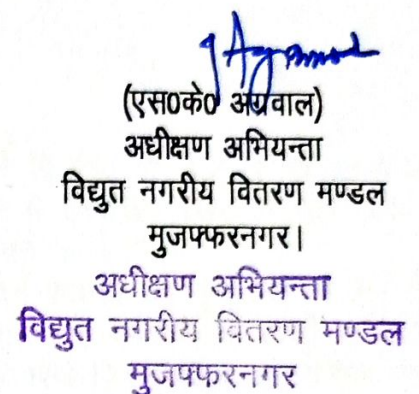 (एस0के0 अग्रवाल)
अधीक्षण अभियन्ता
विद्युत नगरीय वितरण मण्डल
मुजफ्फरनगर।
अधीक्षण अभियन्ता
विद्युत नगरीय वितरण मण्डल
मुजफ्फरनगर